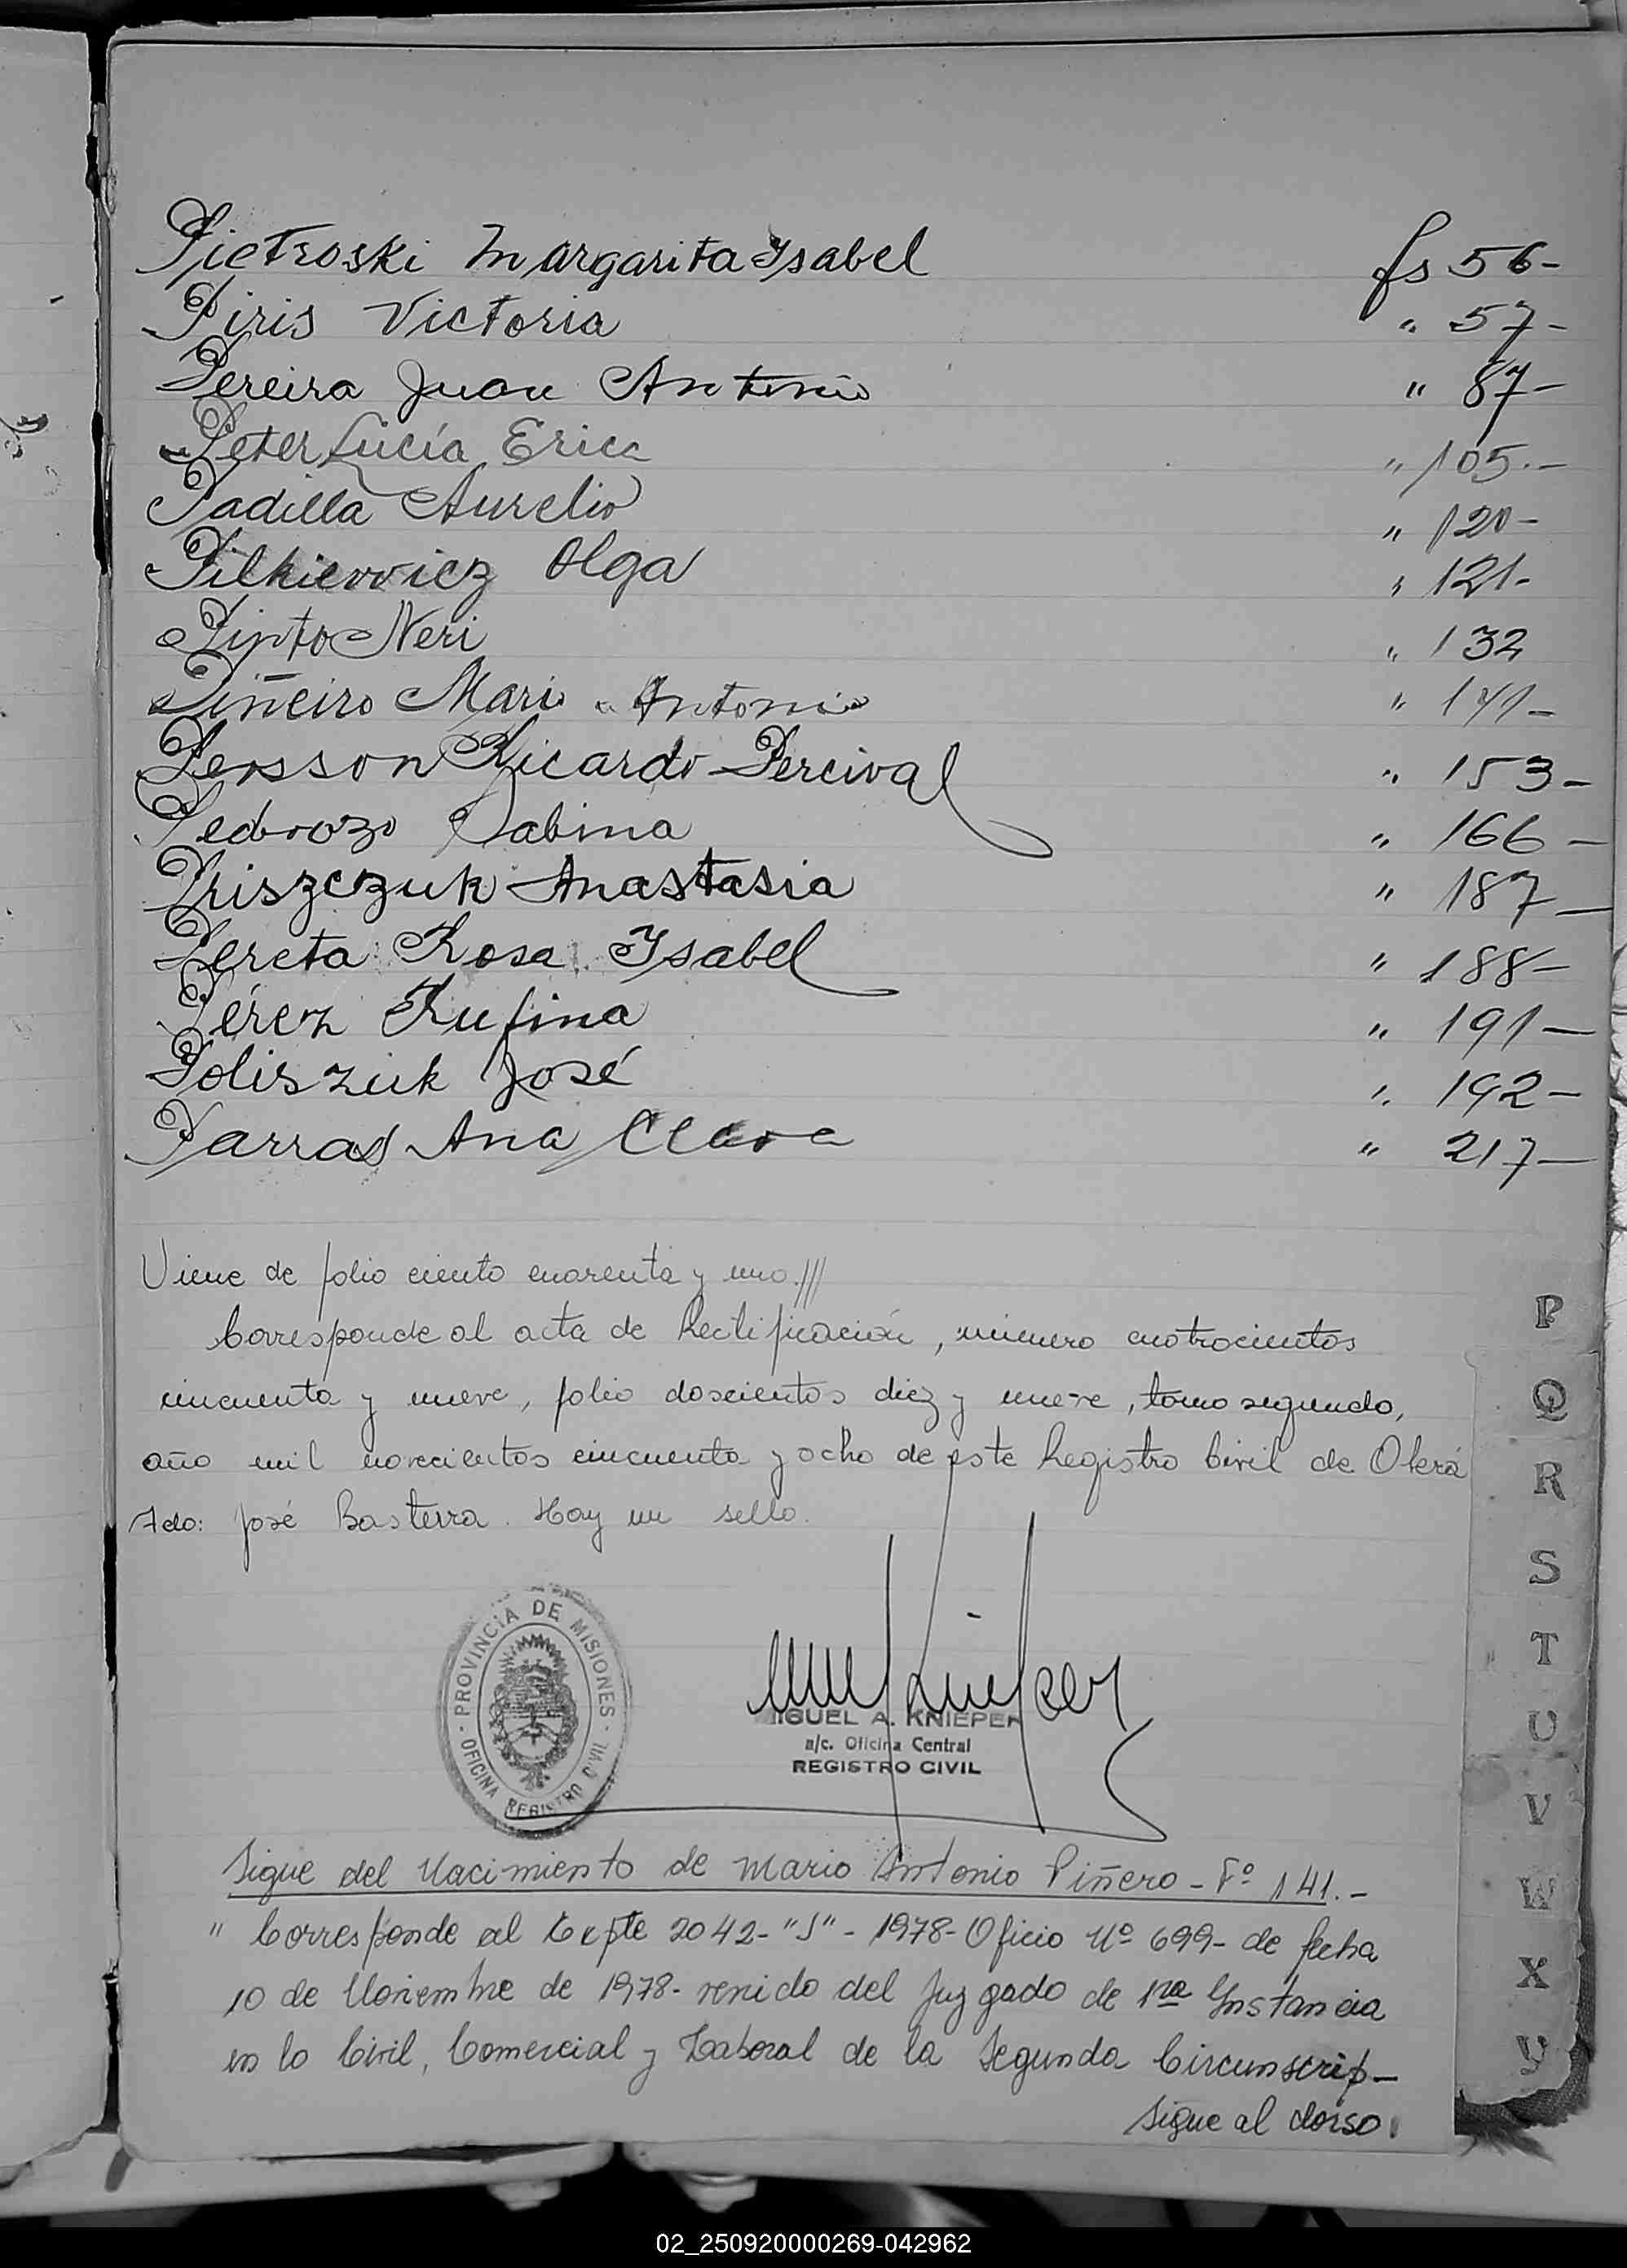 Pietroski Margarita Ysabel fs 56-
Piris Victoria " 57-
Pereira Juan Antonio " 87-
Peter Lucía Erica " 105.-
Padilla Aurelio " 120-
Pilkievvicz Olga " 121-
Pinto Neri " 132
Piñeiro Mario Antonio " 141-
Persson Ricardo Percival " 153-
Pedrozo Sabina " 166-
Priszczuk Anastasia " 187-
Pereta Rosa Ysabel " 188-
Pérez Rufina " 191-
Poliszuk José " 192-
Parras Ana Clara " 217-
Viene de folio ciento cuarenta y uno.///
Corresponde al acta de Rectificación, número cuatrocientos
cincuenta y nueve, folio doscientos diez y nueve, tomo segundo,
año mil novecientos cincuenta y ocho de este Registro Civil de Oberá
Fdo: José Basterra. Hay un sello.
- PROVINCIA DE MISIONES -
OFICINA REGISTRO CIVIL
MIGUEL A. KNIEPER
a/c. Oficina Central
REGISTRO CIVIL
Sigue del Nacimiento de Mario Antonio Piñero - Fº 141.-
" Corresponde al Expte 2042-"S"- 1978- Oficio Nº 699- de fecha
10 de Noviembre de 1978- venido del Juzgado de 1ra Instancia
en lo Civil, Comercial y Laboral de la Segunda Circunscrip-
Sigue al dorso.
P
Q
R
S
T
U
V
W
X
Y
02_250920000269-042962